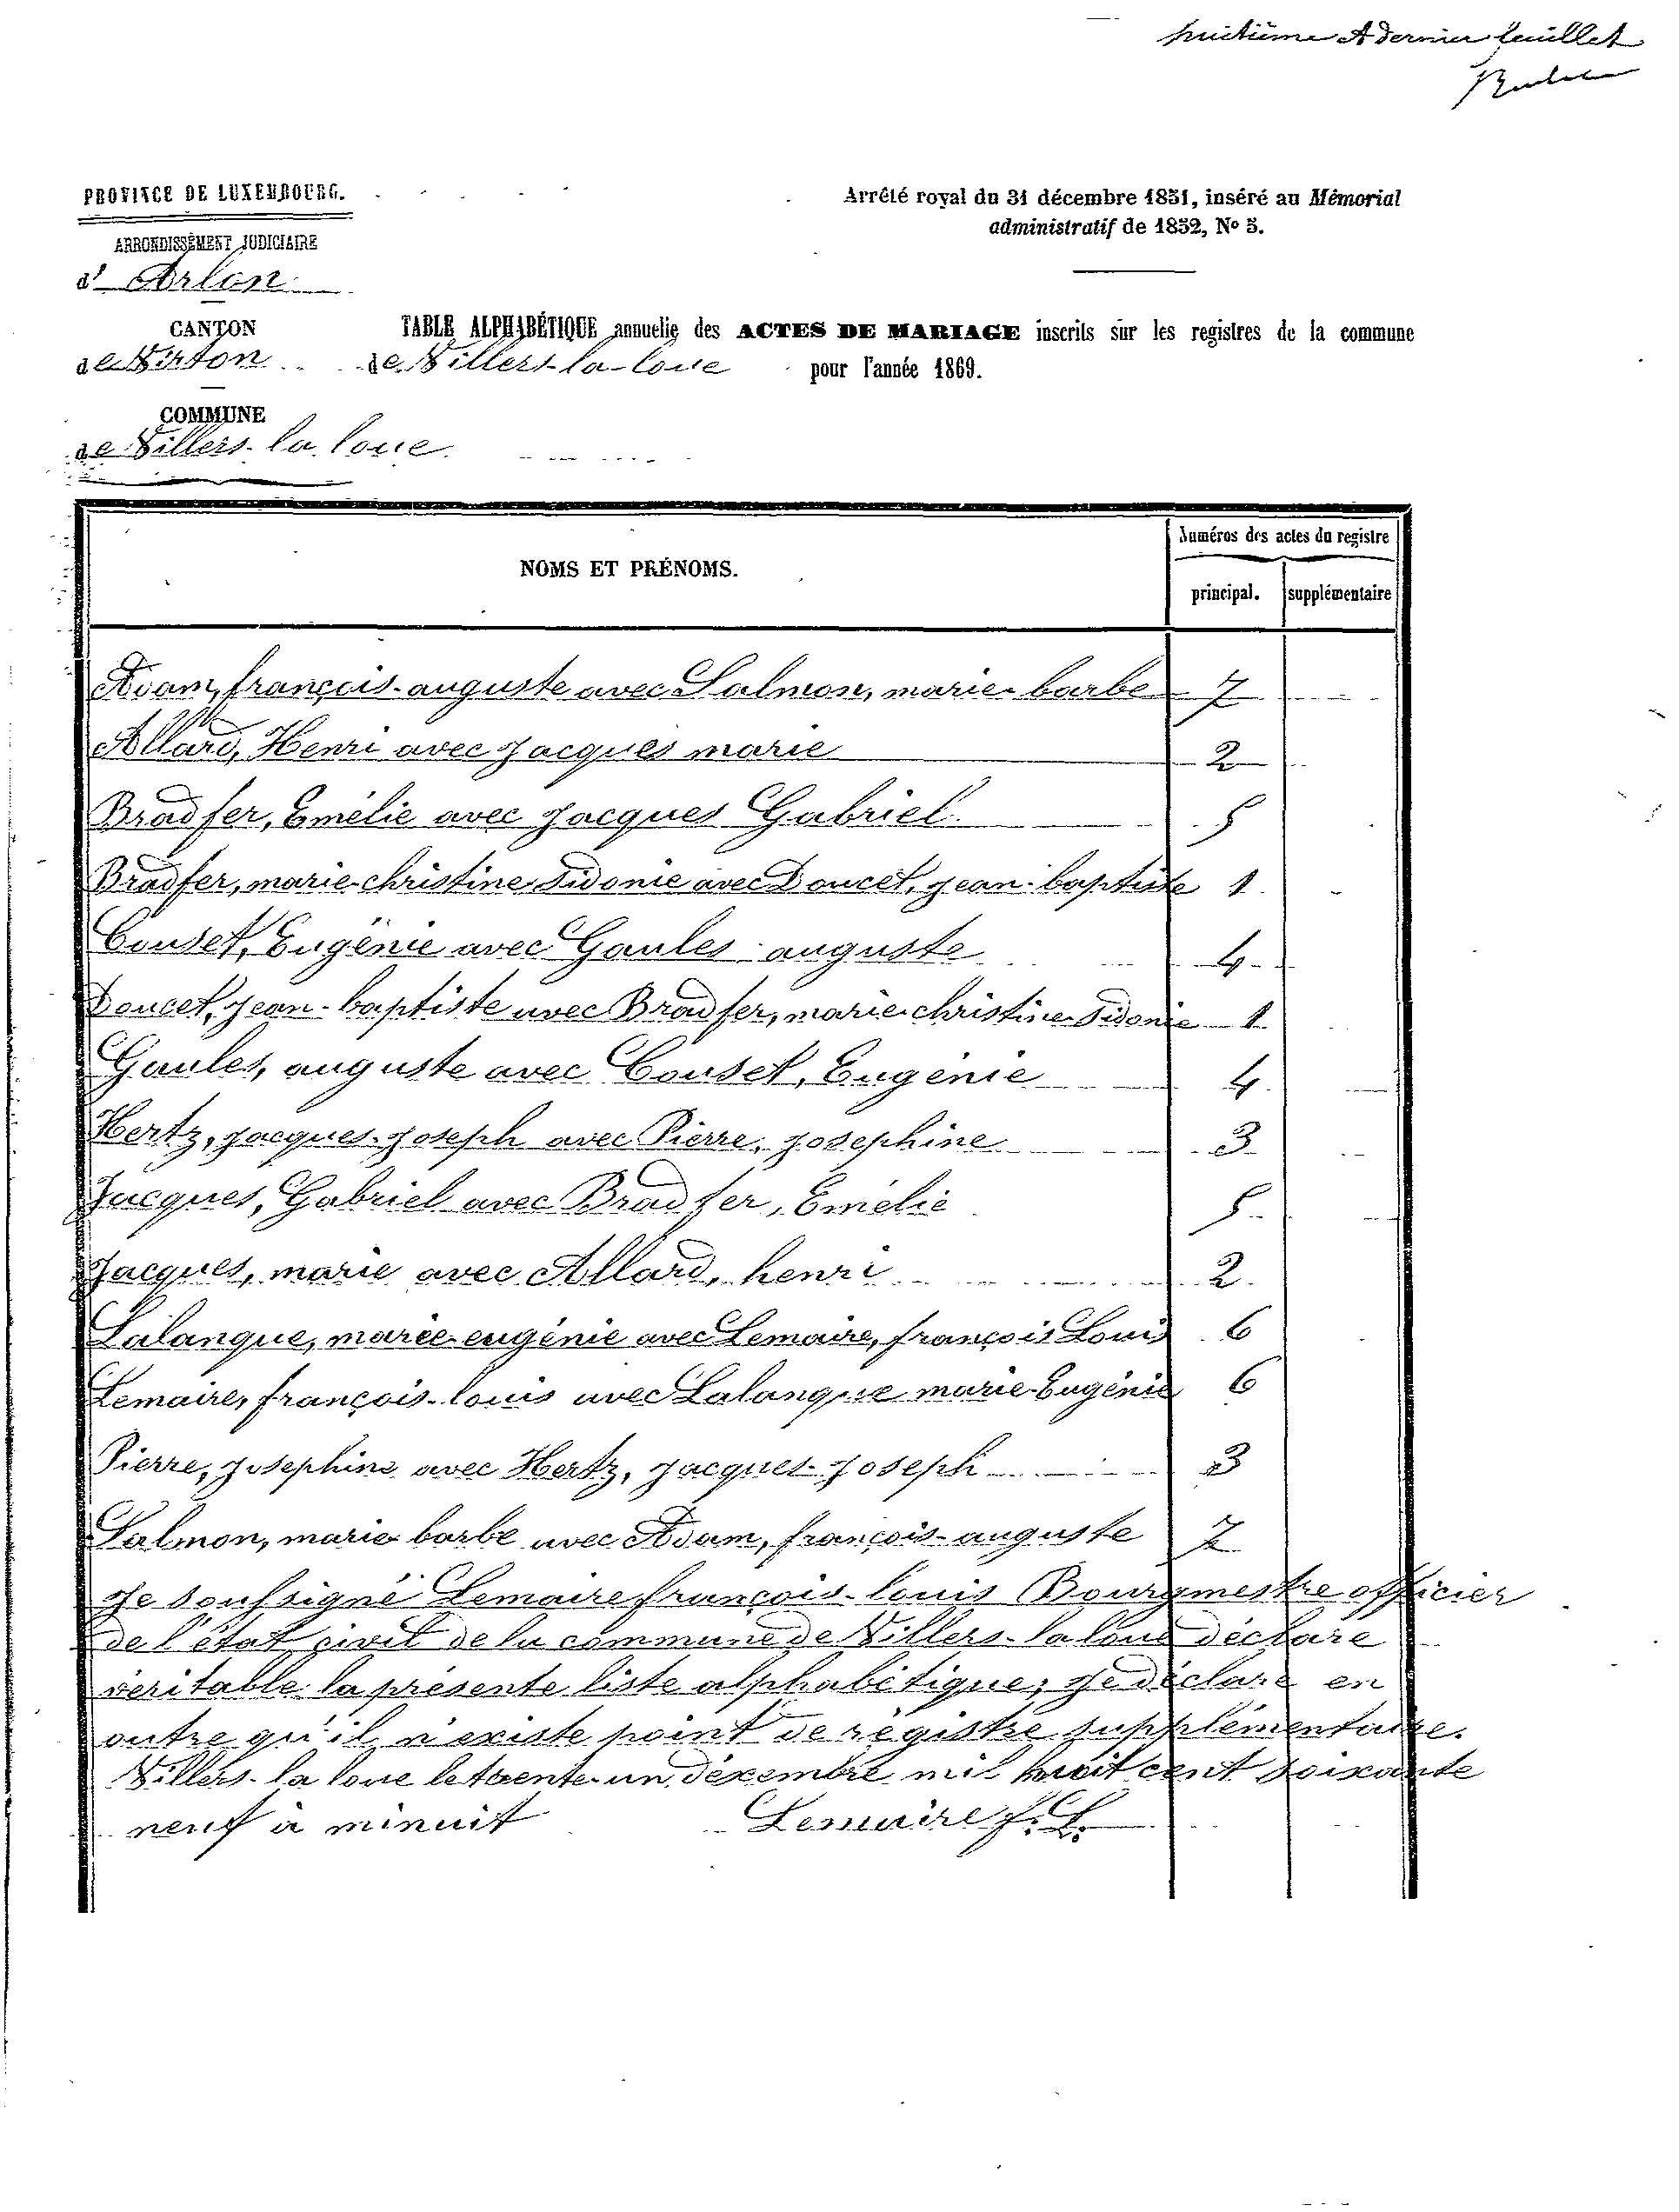 huitième et dernier feuillet
PROVINCE DE LUXEMBOURG.
Arrêté royal du 31 décembre 1851, inséré au Mémorial
administratif de 1852, No 5.
ARRONDISSEMENT JUDICIAIRE
d' Arlon
CANTON
de Virton
TABLE ALPHABÉTIQUE annuelle des ACTES DE MARIAGE inscrits sur les registres de la commune
de Villers-la-loue pour l'année 1869.
COMMUNE
de Villers-la-loue
NOMS ET PRÉNOMS.
Numéros des actes du registre
principal. supplémentaire
Adam, françois-auguste avec Salmon, marie-barbe 7
Allard, Henri avec Jacques marie 2
Bradfer, Emélie avec Jacques Gabriel 5
Bradfer, marie-christine Sidonie avec Doucet, jean-baptiste 1
Couset, Eugénie avec Gaules auguste 4
Doucet, jean-baptiste avec Bradfer, marie-christine Sidonie 1
Gaules, auguste avec Couset, Eugénie 4
Hertz, jacques-joseph avec Pierre, josephine 3
Jacques, Gabriel avec Bradfer, Emélie 5
Jacques, marie avec Allard, henri 2
Lalanque, marie-eugénie avec Lemaire, françois Louis 6
Lemaire, françois-louis avec Lalanque marie-Eugénie 6
Pierre, josephine avec Hertz, jacques-joseph 3
Salmon, marie barbe avec Adam, françois-auguste 7
Je soussigné Lemaire françois-louis Bourgmestre officier
de l'état civil de la commune de Villers-la loue déclare
véritable la présente liste alphabétique; je déclare en
outre qu'il n'existe point de régistre supplémentaire.
Villers-la loue le trente-un décembre mil huit cent soixante
neuf à minuit Lemaire f. L.